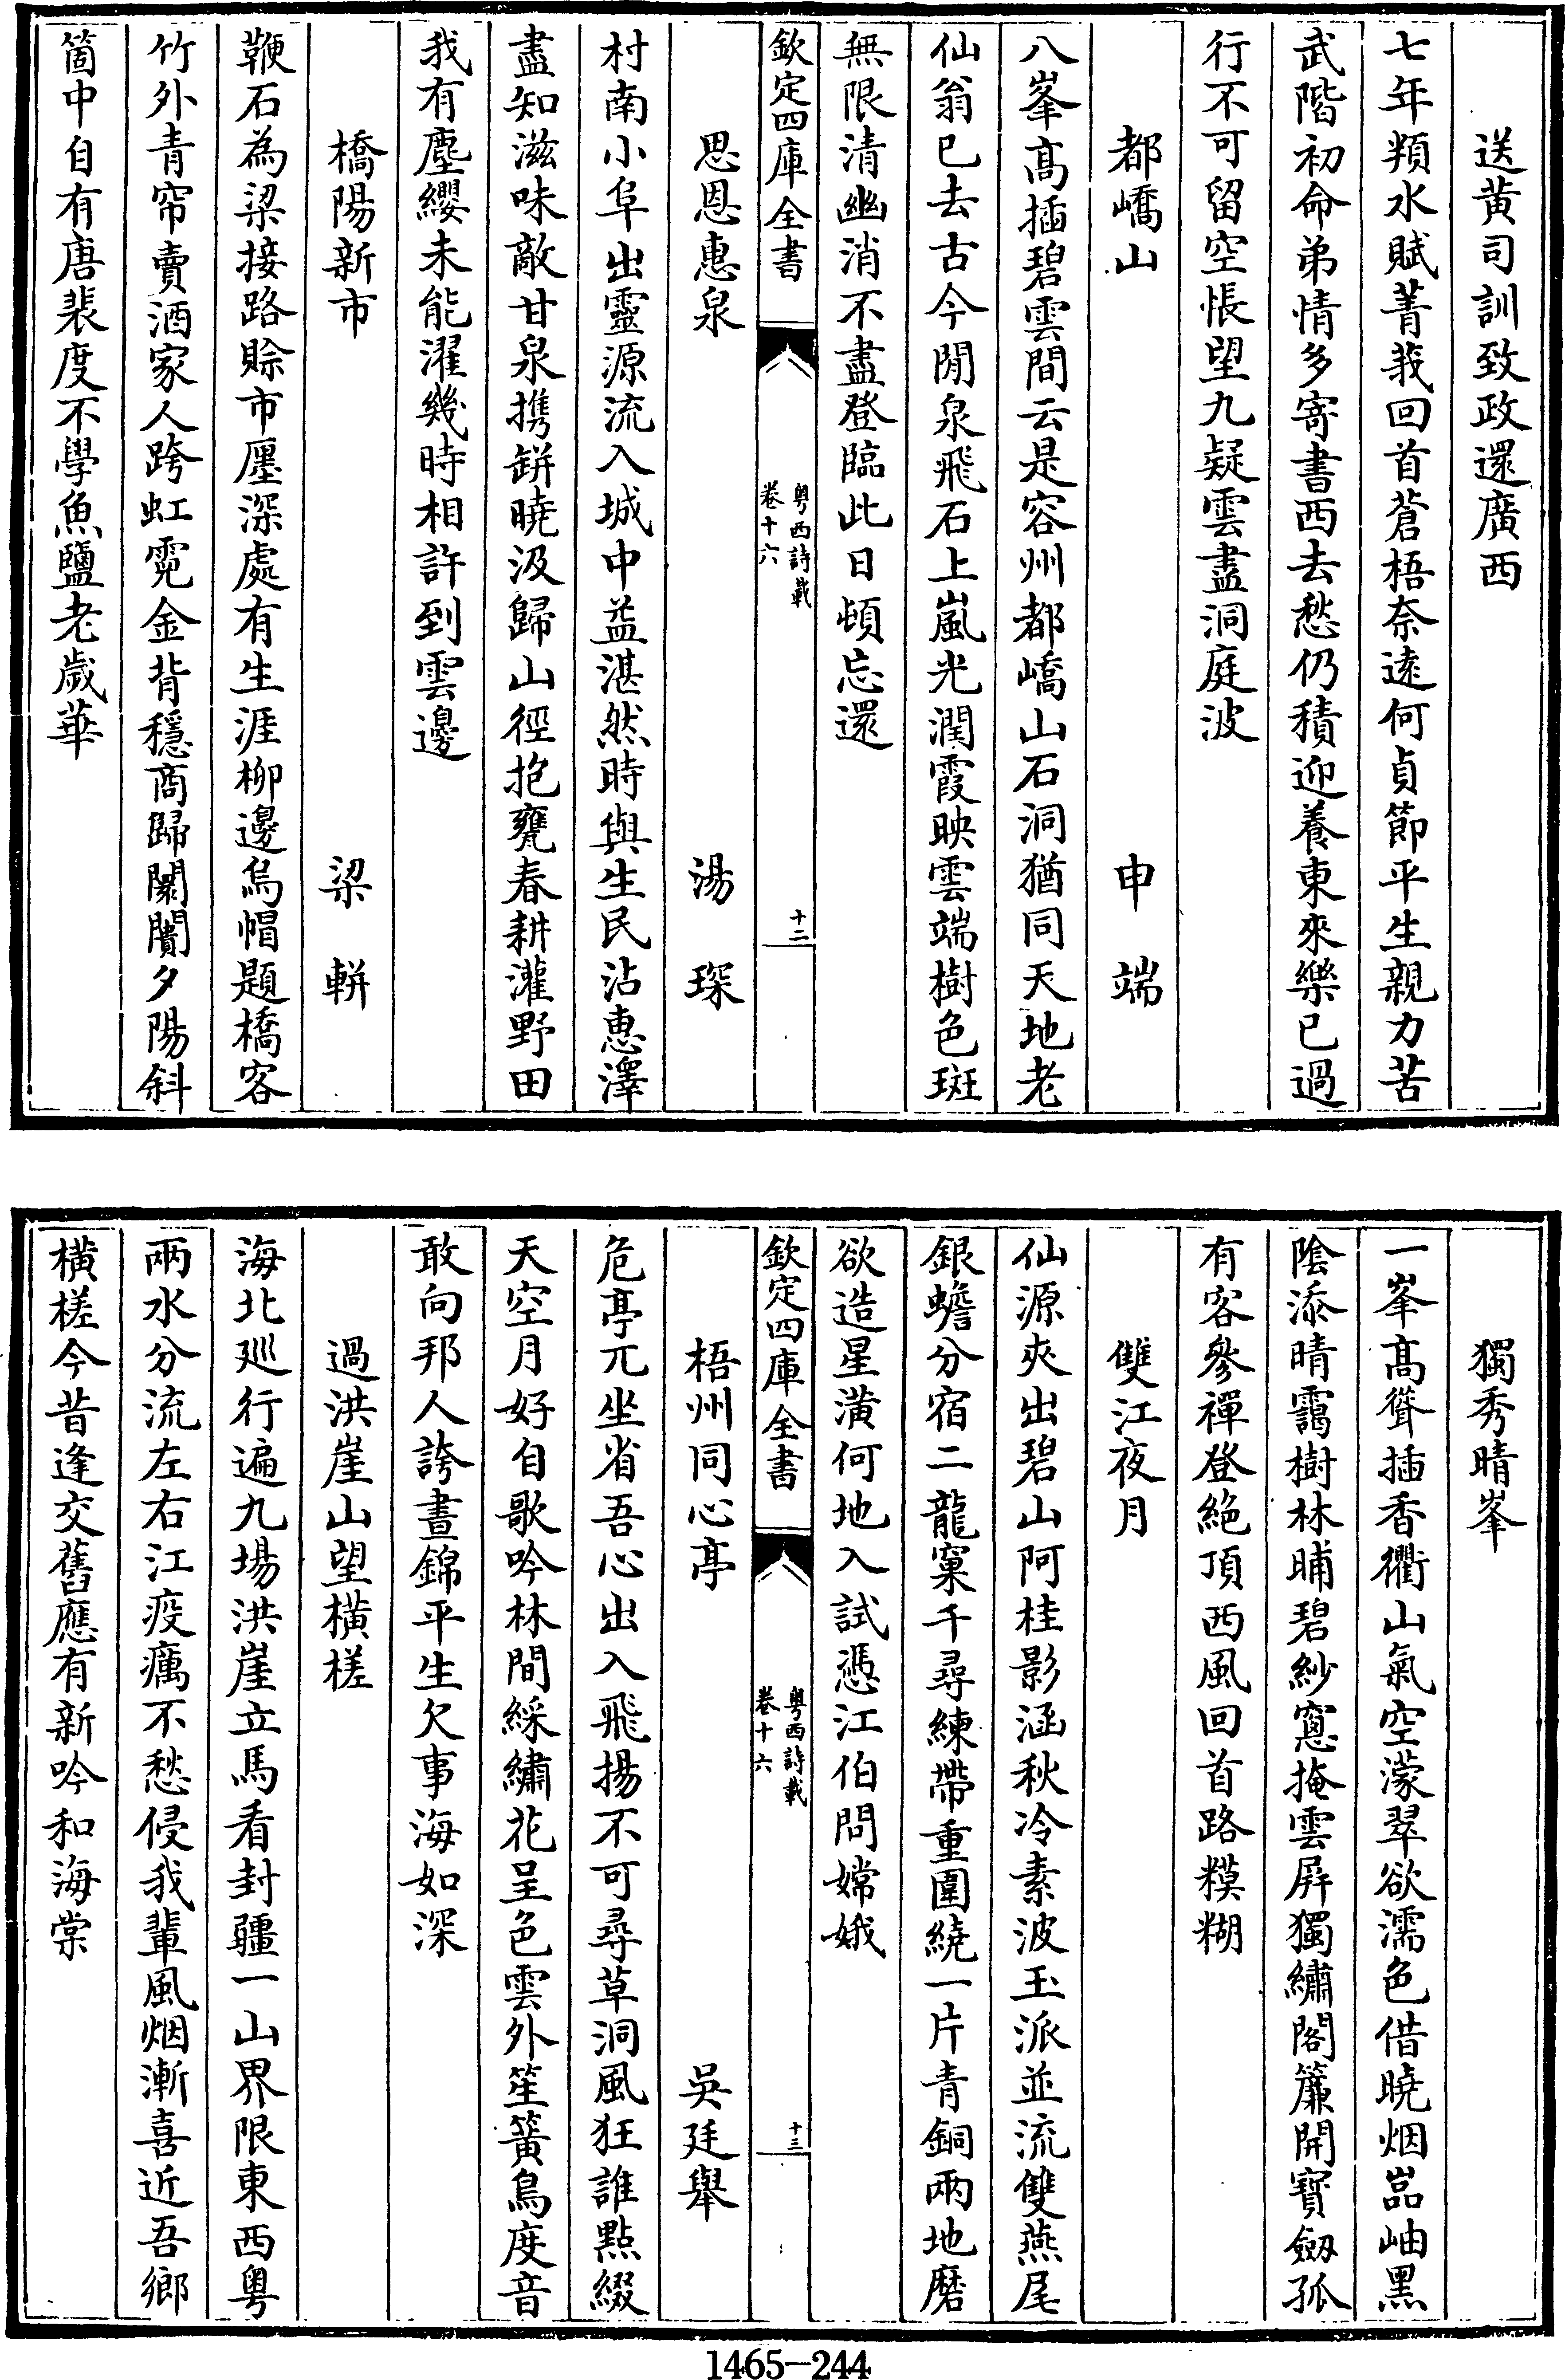 送黄司訓致政還廣西
七年頖水賦菁莪回首蒼梧奈逺何貞節平生親力苦
武階初命弟情多寄書西去愁仍積迎養東來樂已過
行不可留空悵望九疑雲盡洞庭波
都嶠山 申端
八峯髙插碧雲間云是容州都嶠山石洞猶同天地老
仙翁已去古今閒泉飛石上嵐光潤霞映雲端樹色斑
無限清幽消不盡登臨此日頓忘還
欽定四庫全書 粤西詩載 卷十六 十二
思恩惠泉 湯琛
村南小阜出靈源流入城中益湛然時與生民沾惠澤
盡知滋味敵甘泉携缾曉汲歸山徑抱甕春耕灌野田
我有塵纓未能濯幾時相許到雲邊
橋陽新市 梁輧
鞭石為梁接路賖市廛深處有生涯柳邊烏帽題橋客
竹外青帘賣酒家人跨虹霓金背穩商歸闤闠夕陽斜
箇中自有唐裴度不學魚鹽老歲華
獨秀晴峯
一峯髙聳插香衢山氣空濛翠欲濡色借曉烟嵓岫黑
陰添晴靄樹林晡碧紗窻掩雲屏獨繡閣簾開寳劔孤
有客參禪登絶頂西風回首路糢糊
雙江夜月
仙源夾出碧山阿桂影涵秋冷素波玉派並流雙燕尾
銀蟾分宿二龍窠千尋練帶重圍繞一片青銅兩地磨
欲造星潢何地入試憑江伯問嫦娥
欽定四庫全書 粤西詩載 卷十六 十三
梧州同心亭 吳廷舉
危亭兀坐省吾心出入飛揚不可尋草洞風狂誰點綴
天空月好自歌吟林間綵繡花呈色雲外笙簧鳥度音
敢向邦人誇晝錦平生欠事海如深
過洪崖山望横槎
海北廵行遍九場洪崖立馬看封疆一山界限東西粤
兩水分流左右江疫癘不愁侵我輩風烟漸喜近吾鄉
横槎今昔逢交舊應有新吟和海棠
1465-244